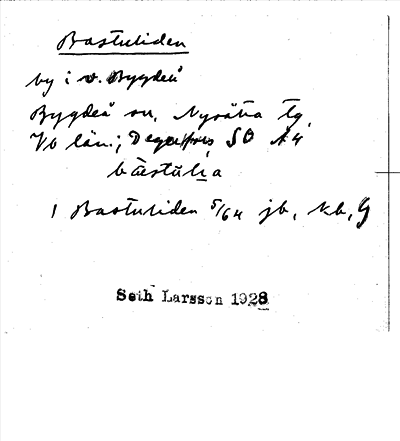 Bastuliden
by i v. Bygdeå
Bygdeå sn, Nysätra tg,
Vb län.; Degerfors SO A4
båstúlıa
1 Bastuliden 5/64 jb, kb, G
Seth Larsson 1928